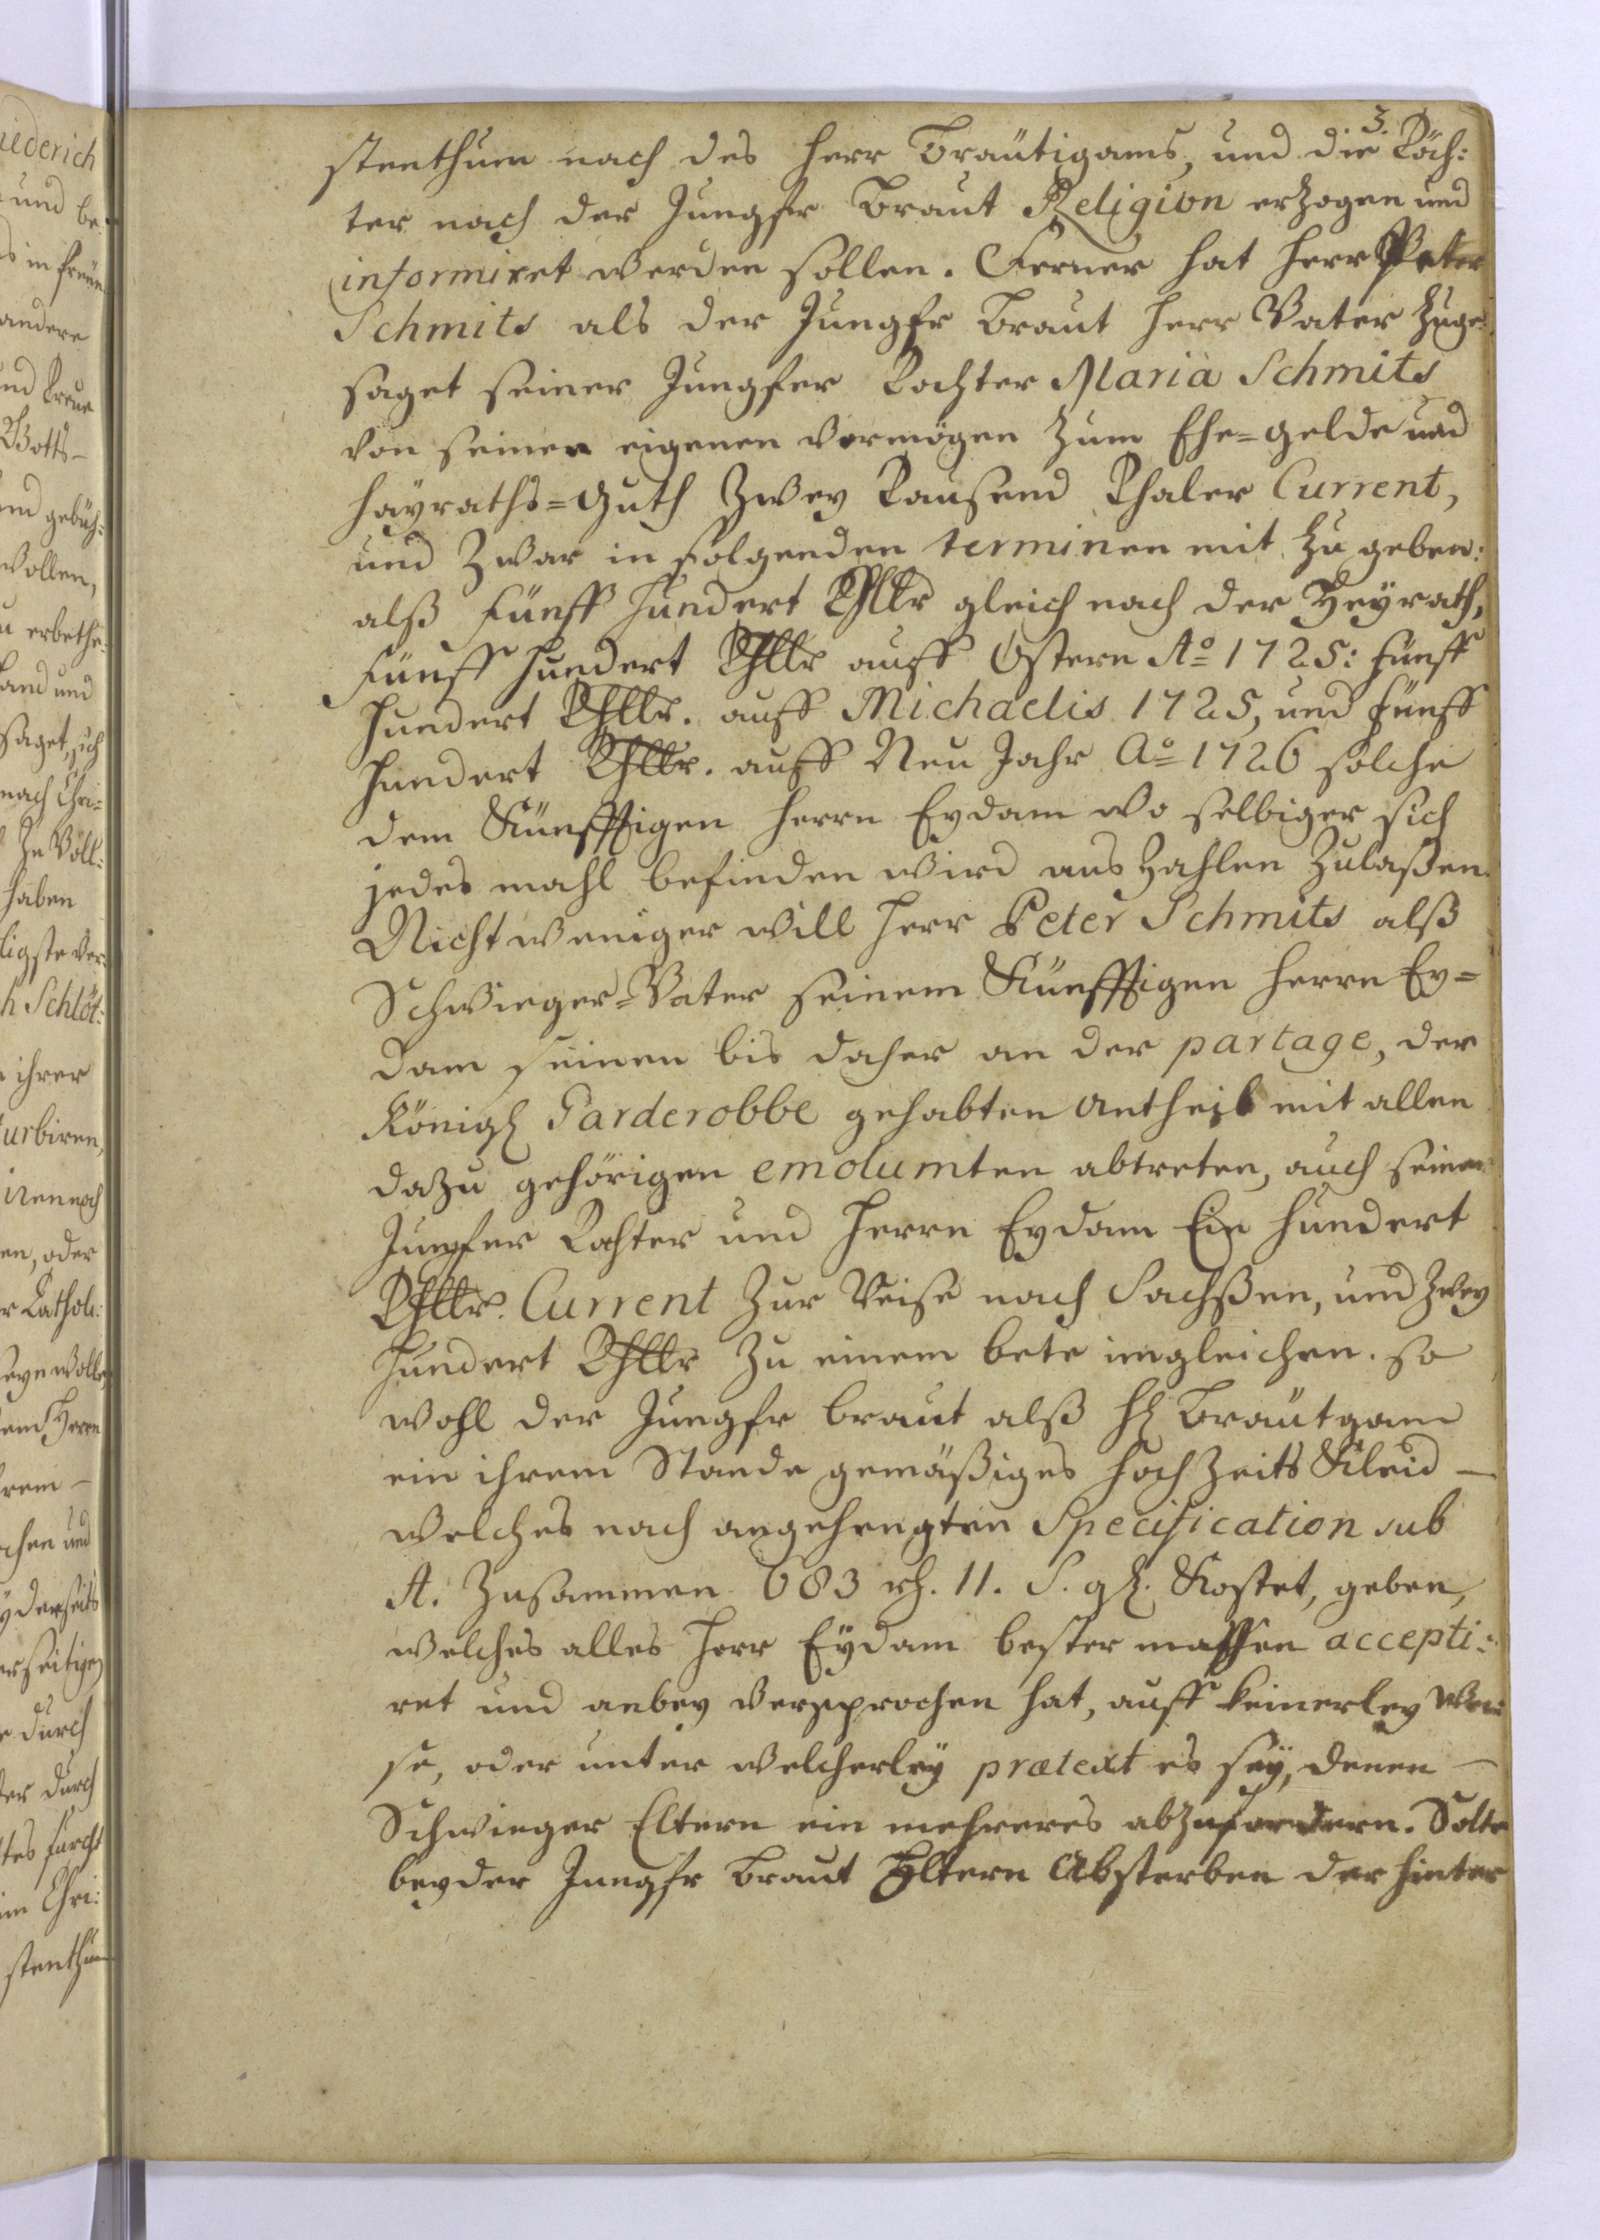 3.
stenthum nach des Herr Bräutigams, und die Töch:
ter nach der Jungfr Braut Religion erzogen und
informiret werden sollen. Ferner hat Herr Peter
Schmits als der Jungfr Braut Herr Vater zuge¬
saget seiner Jungfer Tochter Maria Schmits
von seinen eigenen Vermögen zum Ehe=gelde und
Hayraths=Guth Zwey Tausend Thaler Current,
und Zwar in folgenden terminen mit zu geben:
alß Fünff Hundert Thllr gleich nach der Heyrath,
Fünff Hundert Thllr auff Ostern Ao 1725: Fünff
Hundert Thllr. auff Michaelis 1725, und Fünff
Hundert Thllr. auff Neu Jahr Ao 1726 solche
dem Künfftigen Herrn Eydam wo selbiger sich
jedes mahl befinden wird aus Zahlen zulaßen.
Nicht weniger will Herr Peter Schmits alß
Schwieger=Vater seinem Künfftigen Herrn Ey=
dam seinen bis daher an der partage, der
Königl Garderobbe gehabten Antheil mit allen
dazu gehörigen emolumten abtreten, auch seiner
Jungfer Tochter und Herrn Eydam Ein Hundert
Thllr. Current zur Reise nach Sachßen, und Zwey
Hundert Thllr zu einem bete imgleichen. so
wohl der Jungfr braut alß HE Bräutgam
ein ihrem Stande gemäßiges Hoch Zeits Kleid —
welches nach angehengten Specification sub
A. Zusammen 683 rh. 11. S. gl. Kostet, geben,
welches alles Herr Eydam bester massen accepti:
ret und anbey versprochen hat, auff keinerley Wei:
se, oder unter welcherley prætext es sey, denen —
Schwieger Eltern ein mehreres abzufordern. Solte
beyder Jungfr Braut Eltern Absterben der hinter